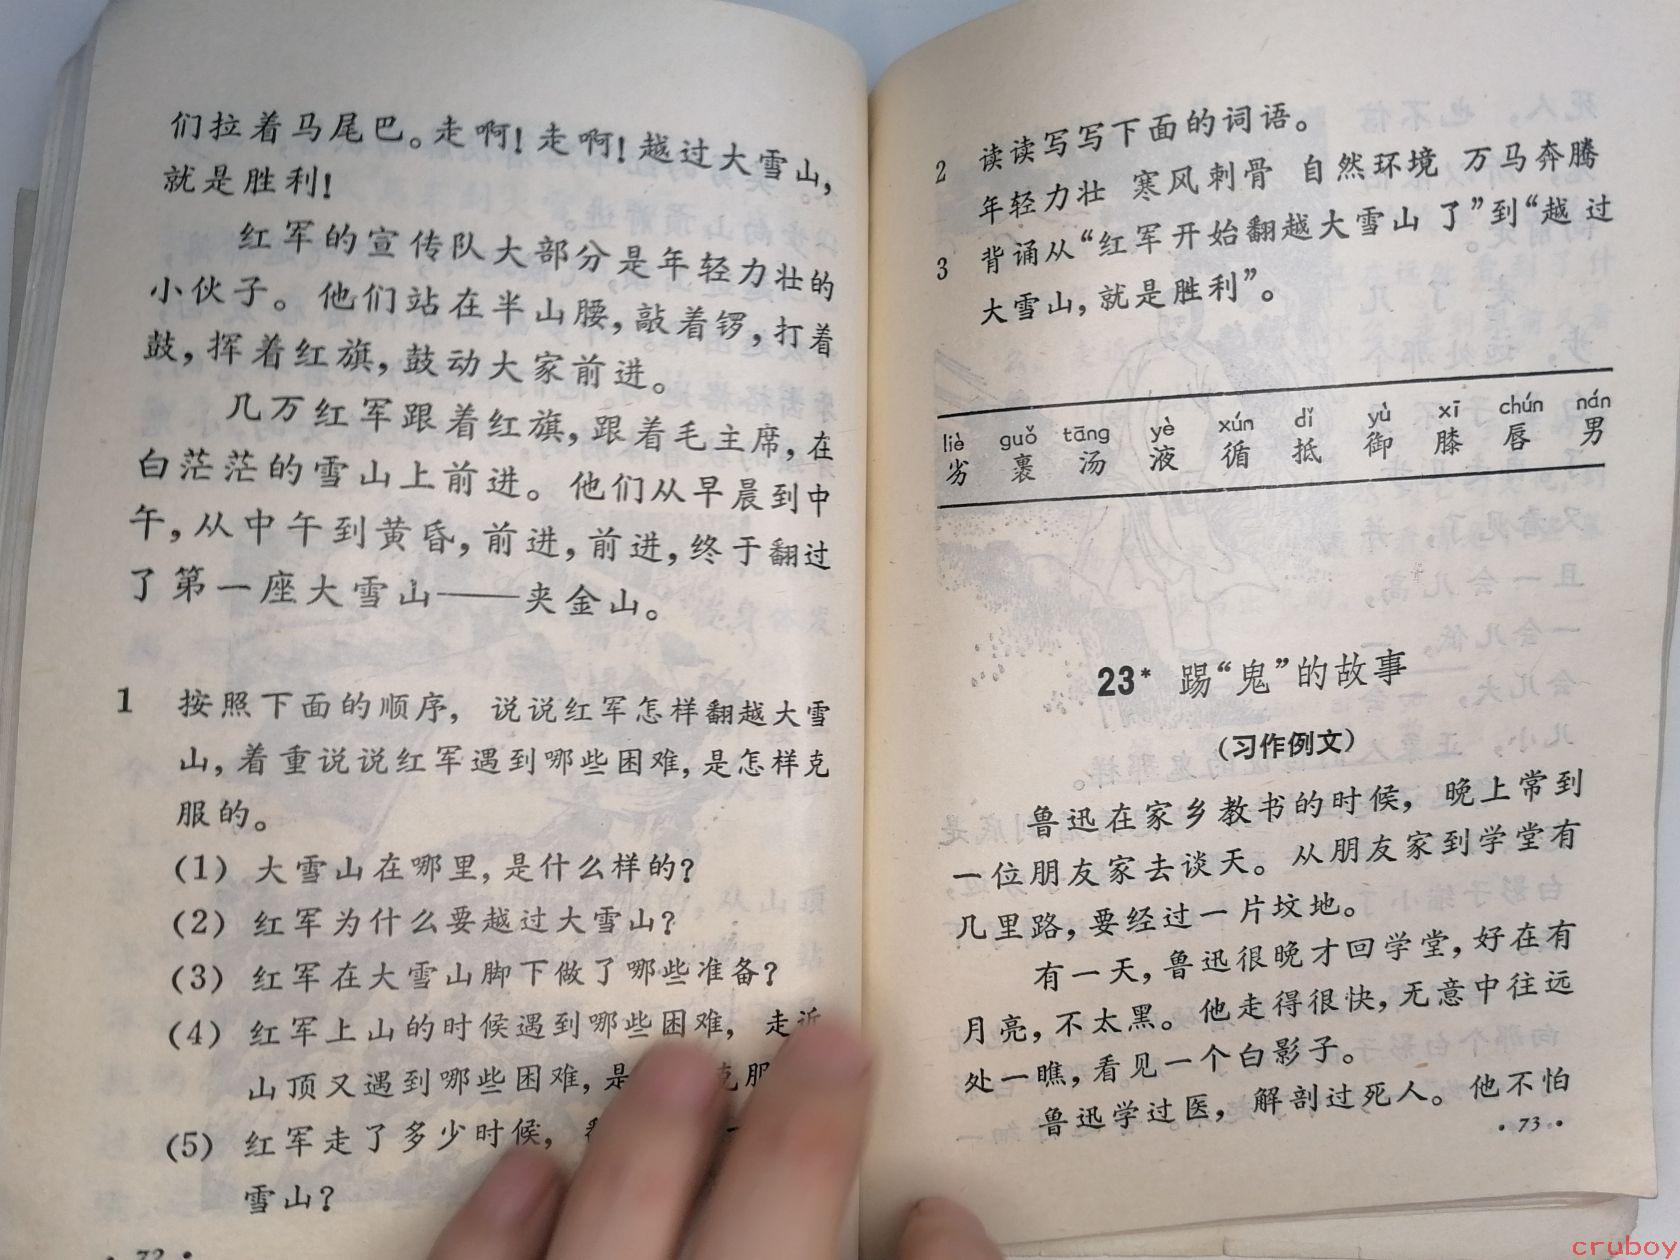 们拉着马尾巴。走啊！走啊！越过大雪山，
就是胜利！
红军的宣传队大部分是年轻力壮的
小伙子。他们站在半山腰，敲着锣，打着
鼓，挥着红旗，鼓动大家前进。
几万红军跟着红旗，跟着毛主席，在
白茫茫的雪山上前进。他们从早晨到中
午，从中午到黄昏，前进，前进，终于翻过
了第一座大雪山——夹金山。
1 按照下面的顺序，说说红军怎样翻越大雪
山，着重说说红军遇到哪些困难，是怎样克
服的。
(1) 大雪山在哪里，是什么样的？
(2) 红军为什么要越过大雪山？
(3) 红军在大雪山脚下做了哪些准备？
(4) 红军上山的时候遇到哪些困难，走近
山顶又遇到哪些困难，是 克服
(5) 红军走了多少时候，
雪山？
·72·
2 读读写写下面的词语。
年轻力壮 寒风刺骨 自然环境 万马奔腾
3 背诵从“红军开始翻越大雪山了”到“越过
大雪山，就是胜利”。
liè guǒ tāng yè xún dǐ yù xī chún nán
劣 裹 汤 液 循 抵 御 膝 唇 男
23* 踢“鬼”的故事
（习作例文）
鲁迅在家乡教书的时候，晚上常到
一位朋友家去谈天。从朋友家到学堂有
几里路，要经过一片坟地。
有一天，鲁迅很晚才回学堂，好在有
月亮，不太黑。他走得很快，无意中往远
处一瞧，看见一个白影子。
鲁迅学过医，解剖过死人。他不怕
·73·
cruboy